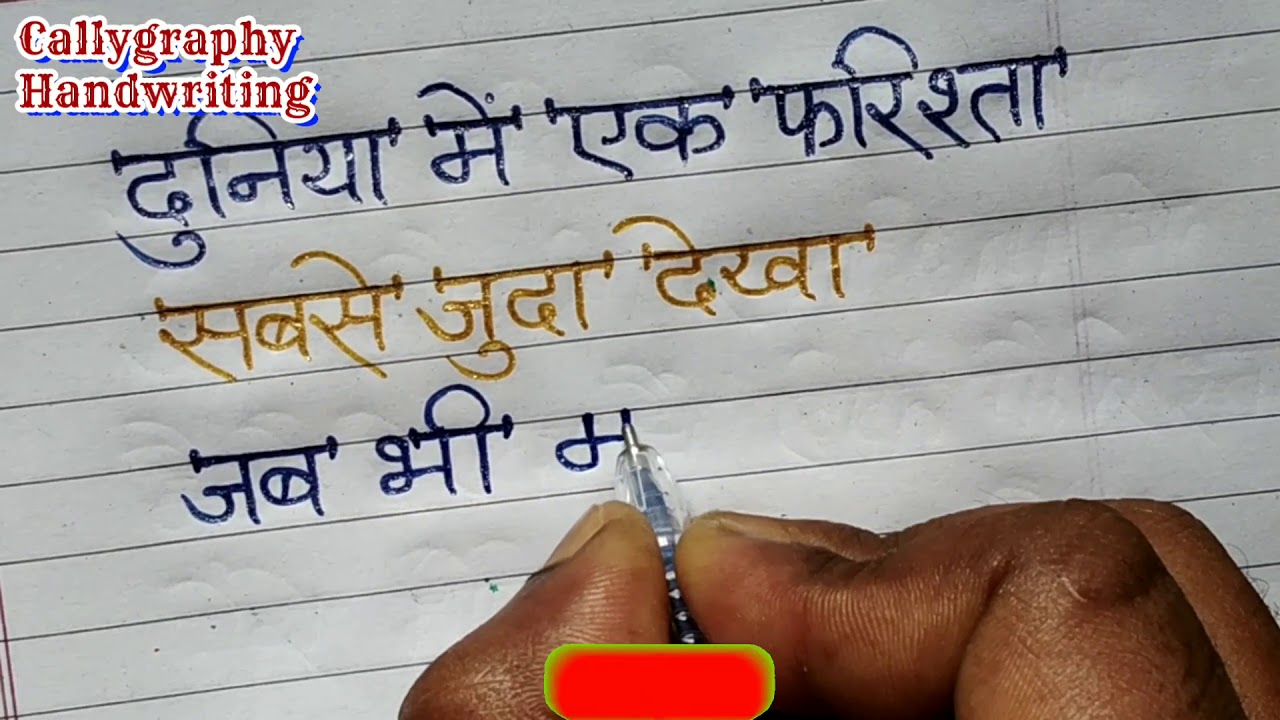 Callygraphy
Handwriting
दुनिया में एक फरिश्ता
सबसे जुदा देखा
जब भी म